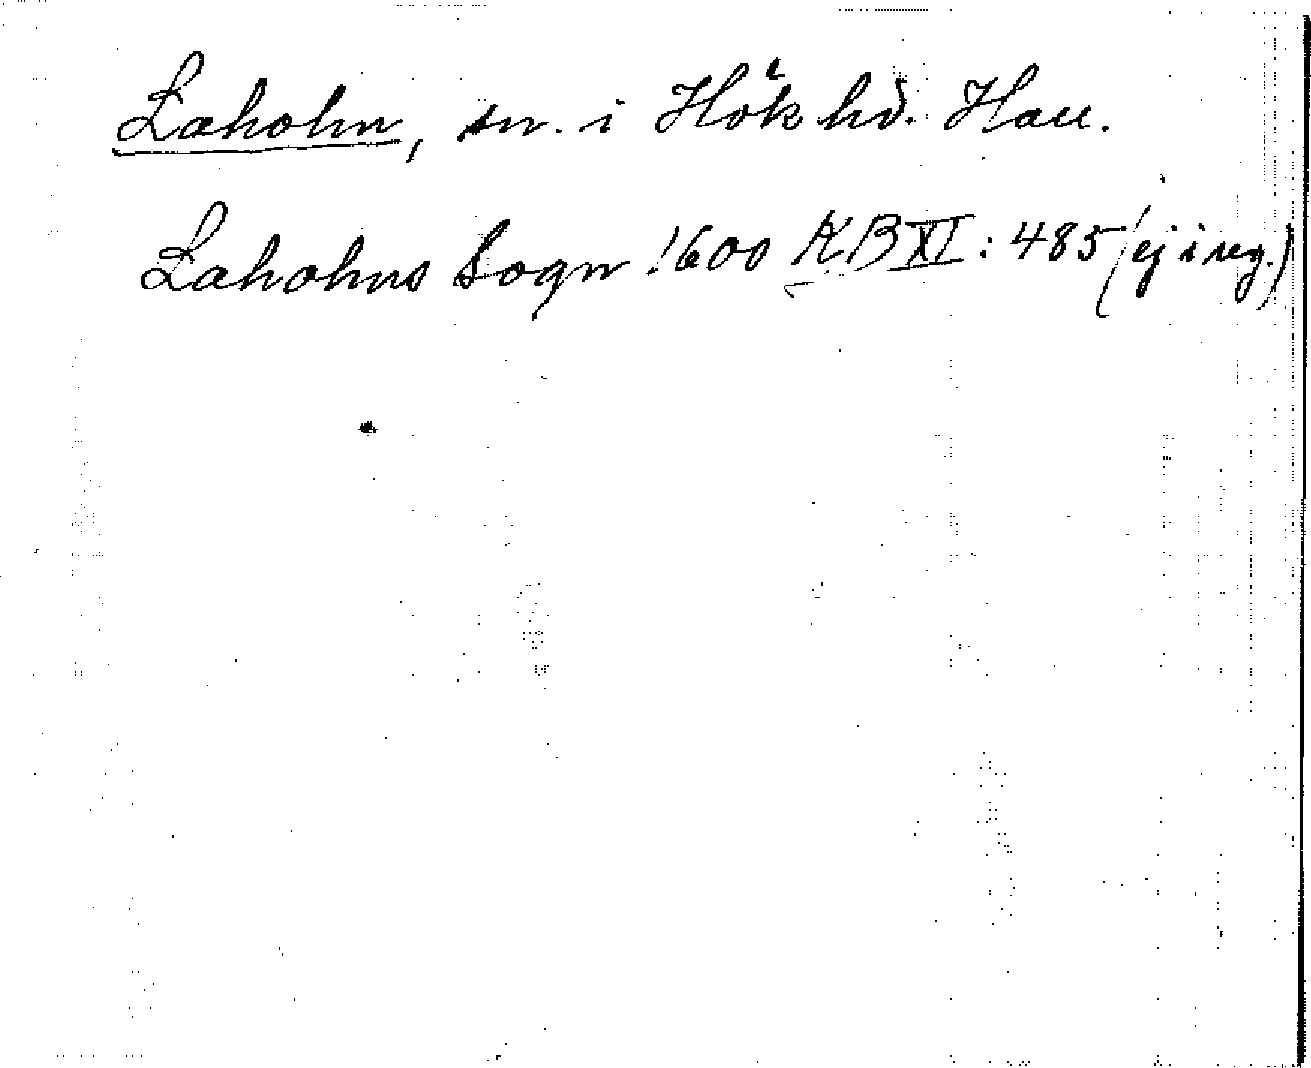 Laholm, sn. i Höks hd. Hall.
Laholms Sogn 1600 KB XI: 485 (ej i reg.)